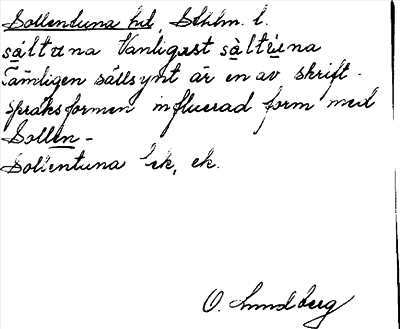 Sollentuna hd Sthlm. l.
sȧltuna Vanligast sàltúna
Tämligen sällsynt är en av skrift-
språksformen influerad form med
Sollen-
Sollentuna sk, ek.
O. Lundberg